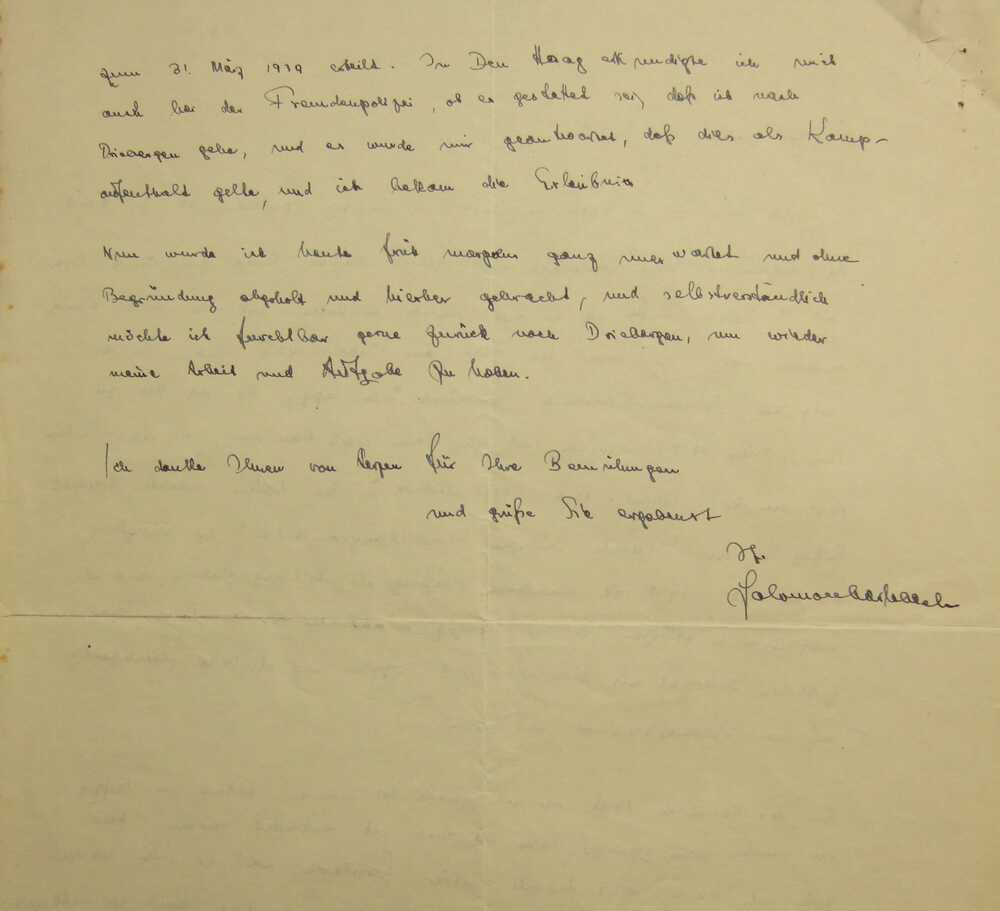 zum 31. März 1939 erteilt. In Den Haag erkundigte ich mich
auch bei der Fremdenpolizei, ob es gestattet sei, daß ich nach
Driebergen gehe, und es wurde mir geantwortet, daß dies als Kamp-
aufenthalt gelte, und ich bekam die Erlaubnis
Nun wurde ich heute früh morgens ganz unerwartet und ohne
Begründung abgeholt und hierher gebracht, und selbstverständlich
möchte ich furchtbar gerne zurück nach Driebergen, um wieder
meine Arbeit und Aufgabe zu haben.
Ich danke Ihnen von Herzen für Ihre Bemühungen
und grüße Sie ergebenst